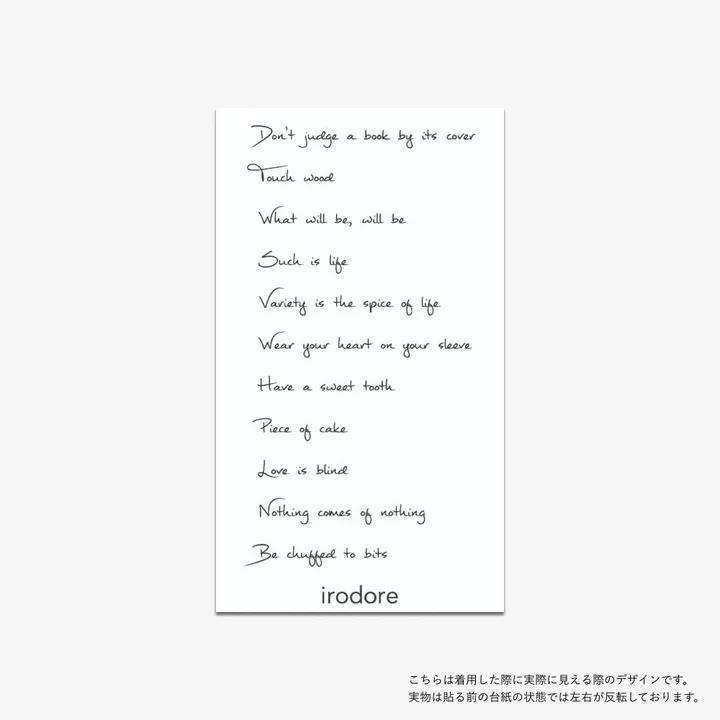 Don't judge a book by its cover
Touch wood
What will be, will be
Such is life
Variety is the spice of life
Wear your heart on your sleeve
Have a sweet tooth
Piece of cake
Love is blind
Nothing comes of nothing
Be chuffed to bits
irodore
こちらは着用した際に実際に見える際のデザインです。
実物は貼る前の台紙の状態では左右が反転しております。